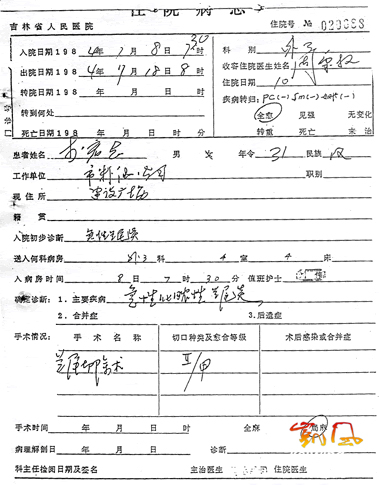 住院病志
吉林省人民医院 住院号 №
入院日期198 4年7月8日7时30 科别 外三
出院日期198 4年7月18日8时 收容住院医生姓名
转院日期198 年 月 日 时 住院日期 10
转到何处 疾病转归: PC(-) Sm(-) (-)
死亡日期198 年 月 日 时 分 全愈 见强 无变化
转重 死亡 未治
门诊号
患者姓名 男 女 年令 31 民族 汉
工作单位 职别
现住所 建设广场
籍贯
入院初步诊断 急性阑尾炎
送入何科病房 外3科 4室 4床
入病房时间 8日7时30分 值班护士
确定诊断: 1.主要疾病 急性化脓性阑尾炎
2.合并症 3.后遗症
手术情况: 手术名称 切口种类及愈合等级 术后感染或合并症
阑尾切除术 Ⅱ/甲
手术时间 年 月 日 时 全麻 局麻
病理解剖日 年 月 日 诊断
科主任检阅日期及签名 主治医生 住院医生